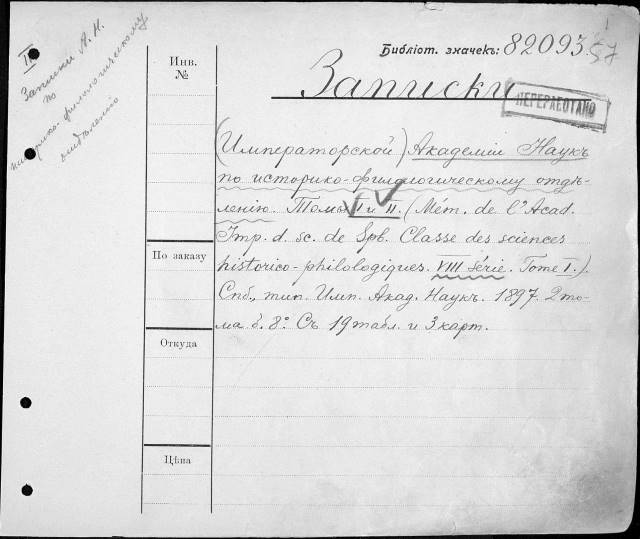 II
Записки А. Н.
по
историко-филологическому
отдѣленію
Инв.
№
По заказу
Откуда
Цѣна
Библіот. значекъ: 82093.57
Записки
ПЕРЕРАБОТАНО
(Императорской) Академіи Наукъ
по историко-филологическому отдѣ-
ленію. Томы I и II. (Mém. de l'Acad.
Imp. d. sc. de Spb. Classe des sciences
historico-philologiques. VIII série. Tome I.).
Спб., тип. Имп. Акад. Наукъ. 1897. 2 то-
ма б. 8º. Съ 19 табл. и 3 карт.